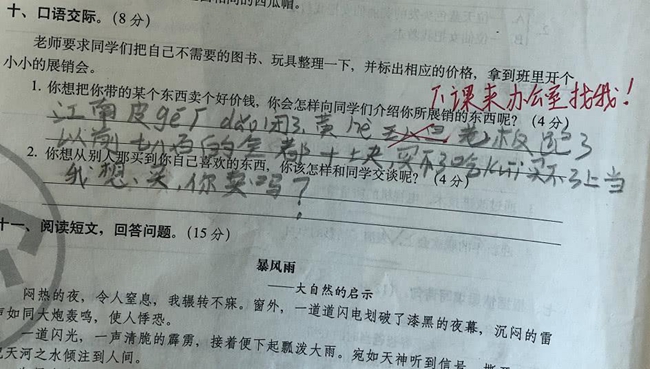 十、口语交际。(8分)
老师要求同学们把自己不需要的图书、玩具整理一下，并标出相应的价格，拿到班里开个
小小的展销会。
下课来办公室找我！
1. 你想把你带的某个东西卖个好价钱，你会怎样向同学们介绍你所展销的东西呢？(4分)
江南皮ger dao闭了，黄he王八旦老板逃了
以前七八百的全部十块，买不了吃kui买不了上当
2. 你想从别人那买到你自己喜欢的东西，你该怎样和同学交谈呢？(4分)
我想买，你卖吗？
十一、阅读短文，回答问题。(15分)
暴风雨
——大自然的启示
闷热的夜，令人窒息，我辗转不寐。窗外，一道道闪电划破了漆黑的夜幕，沉闷的雷
声如同大炮轰鸣，使人悸恐。
一道闪光，一声清脆的霹雳，接着便下起瓢泼大雨。宛如天神听到信号，撕开
天河之水倾注到人间。